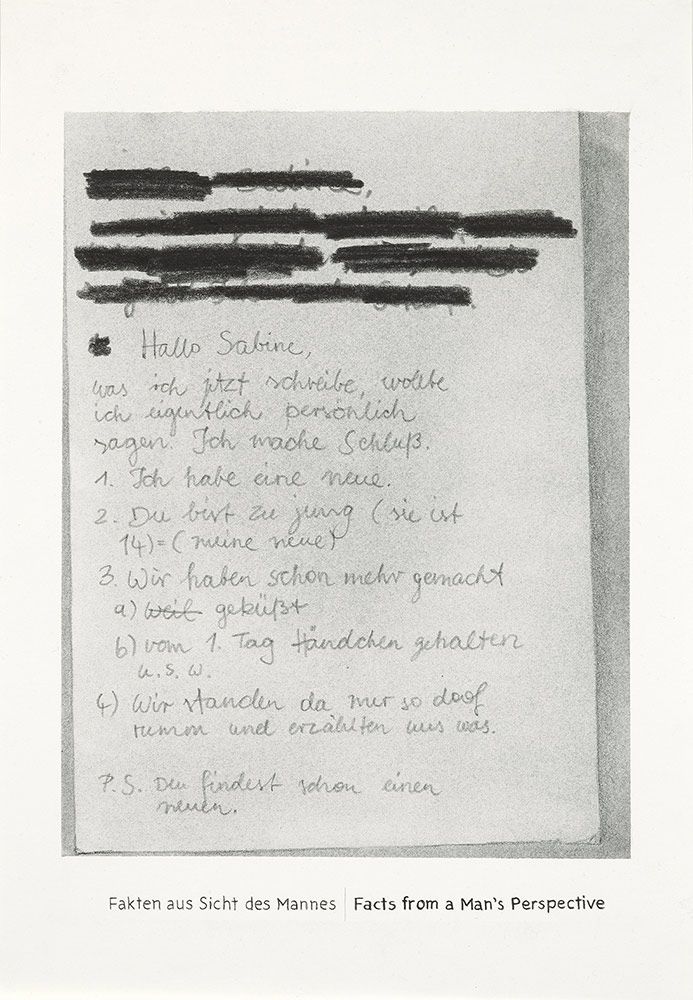 Hallo Sabine,
was ich jtzt schreibe, wollte
ich eigentlich persönlich
sagen. Ich mache Schluß.
1. Ich habe eine neue.
2. Du bist zu jung (sie ist
14)=(meine neue)
3. Wir haben schon mehr gemacht
a) weil geküßt
b) vom 1. Tag Händchen gehalten
u.s.w.
4) Wir standen da nur so doof
rumm und erzählten uns was.
P.S. Du findest schon einen
neuen.
Fakten aus Sicht des Mannes | Facts from a Man's Perspective